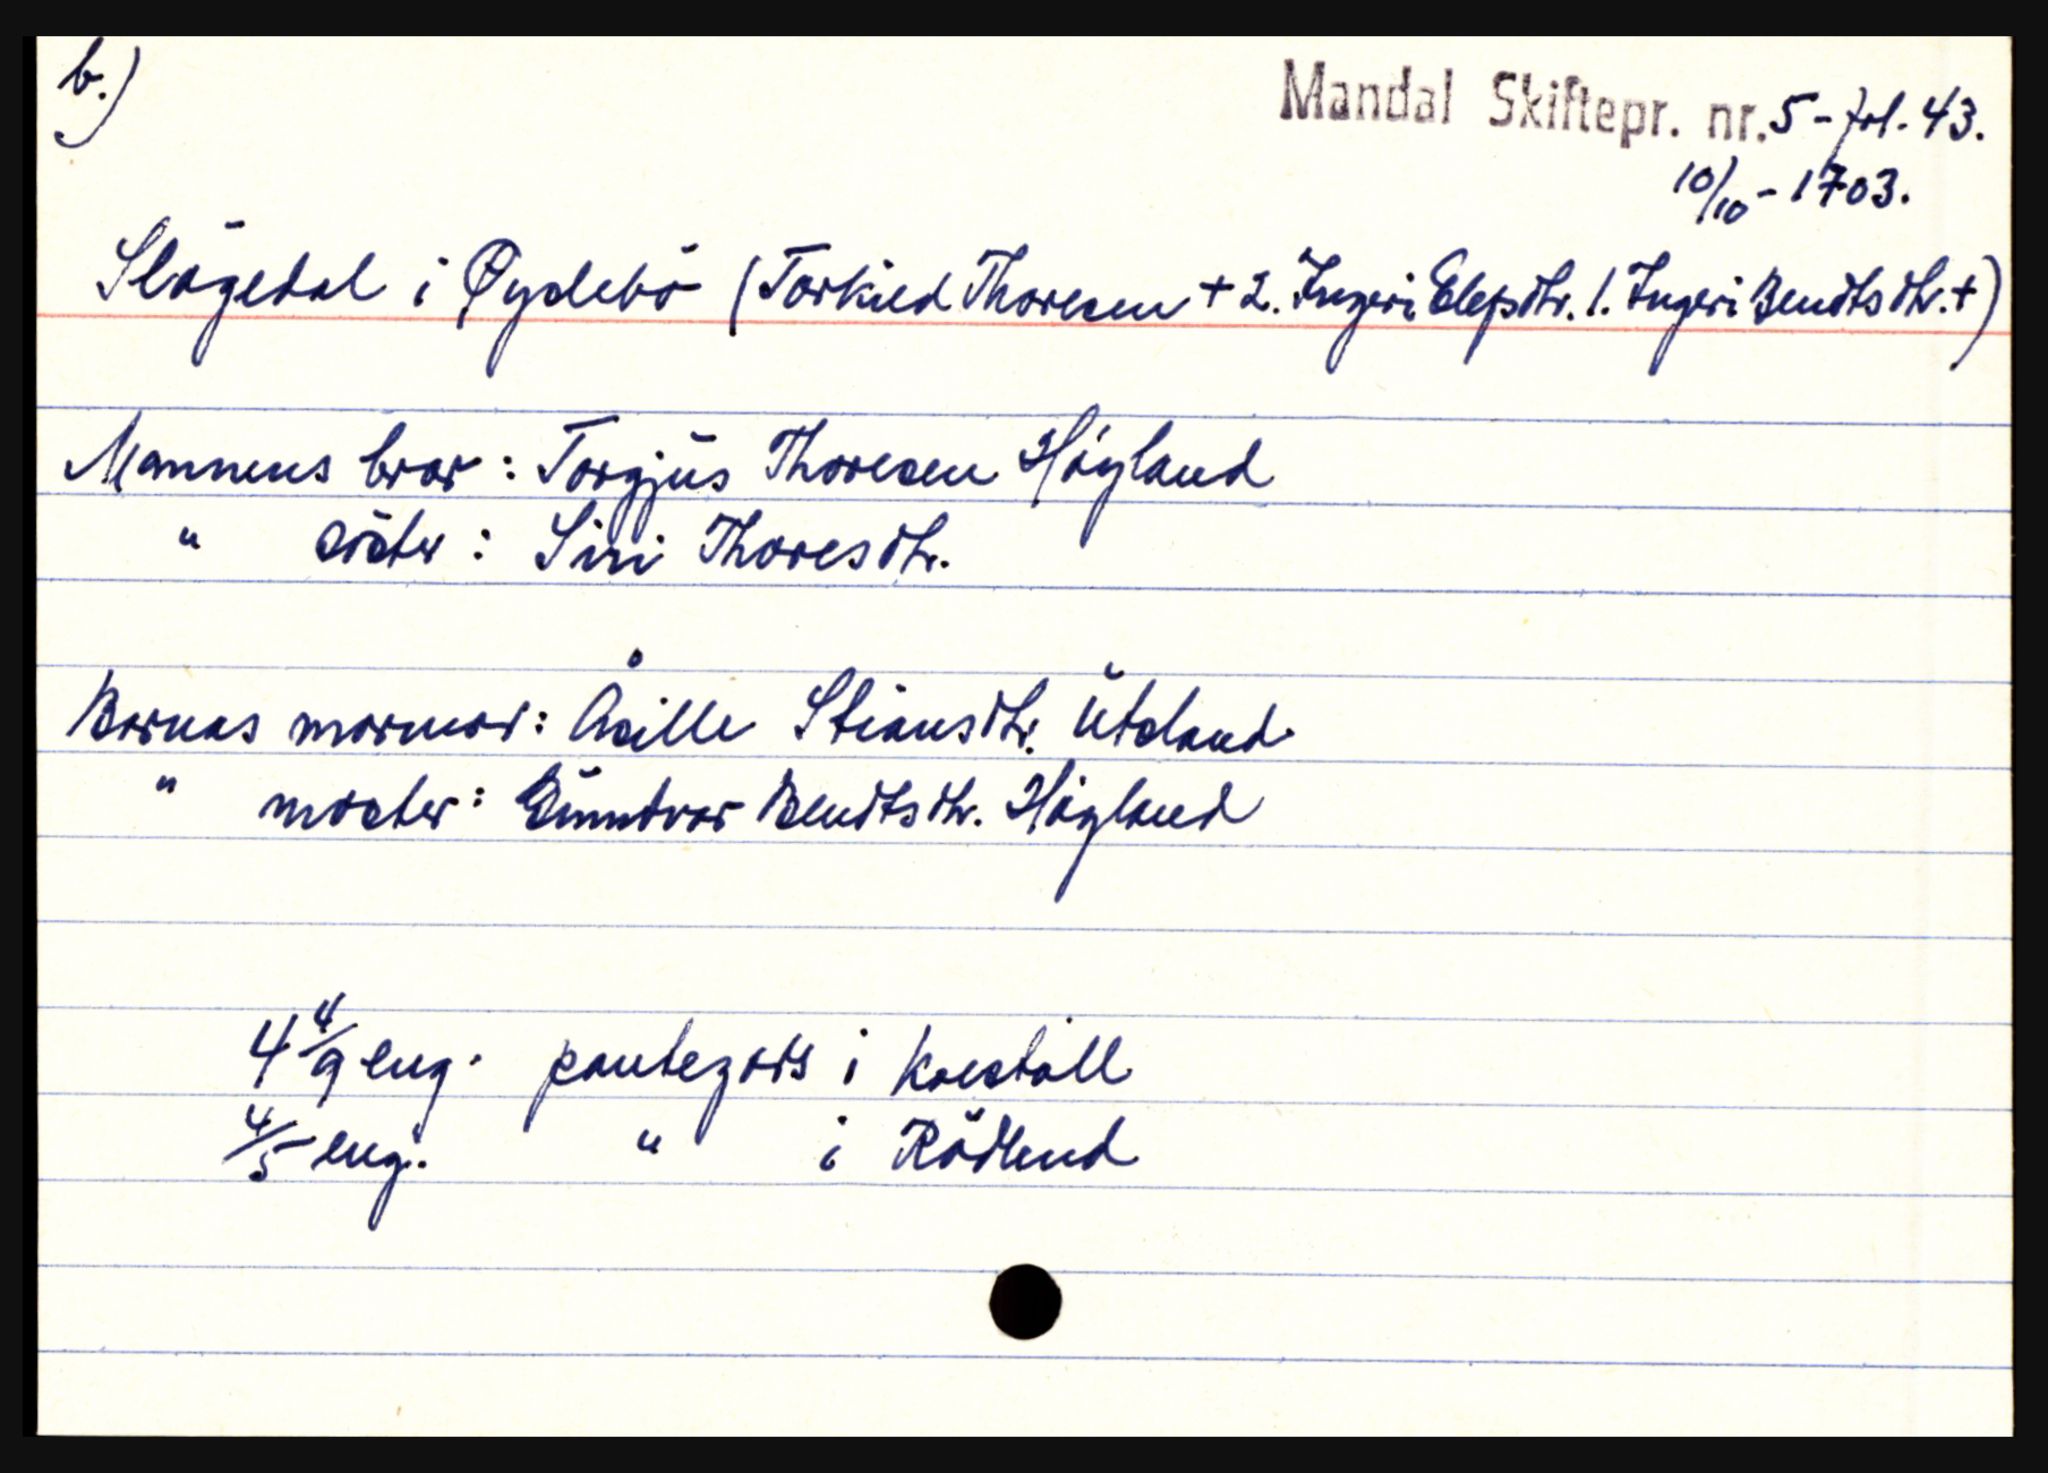 b.)
Mandal Skiftepr. nr. 5 - fol. 43.
10/10 - 1703.
Sløgedal i Øyslebö (Torkild Thoresen + 2. Ingeri Elefsdtr. 1. Ingeri Bendtsdtr. +)
Mannens bror: Torgjus Thoresen Høyland
" søster: Siri Thoresdtr.
Barnas mormor: Åsille Stiansdtr. Udland
" moster: Gunnvor Bendtsdtr. Høyland
4 4/9 eng. pantegods i
4/5 eng. " i Rödlend